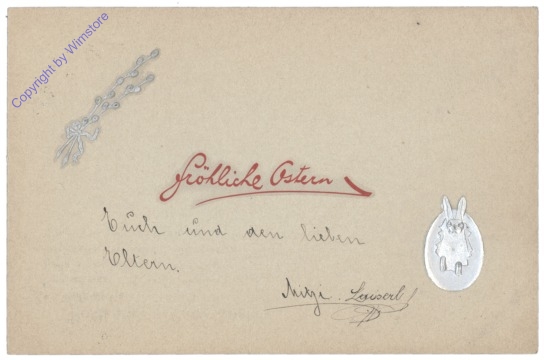 Copyright by Wimstore
fröhliche Ostern
Euch und den lieben
Eltern.
Mitzi. Louserl